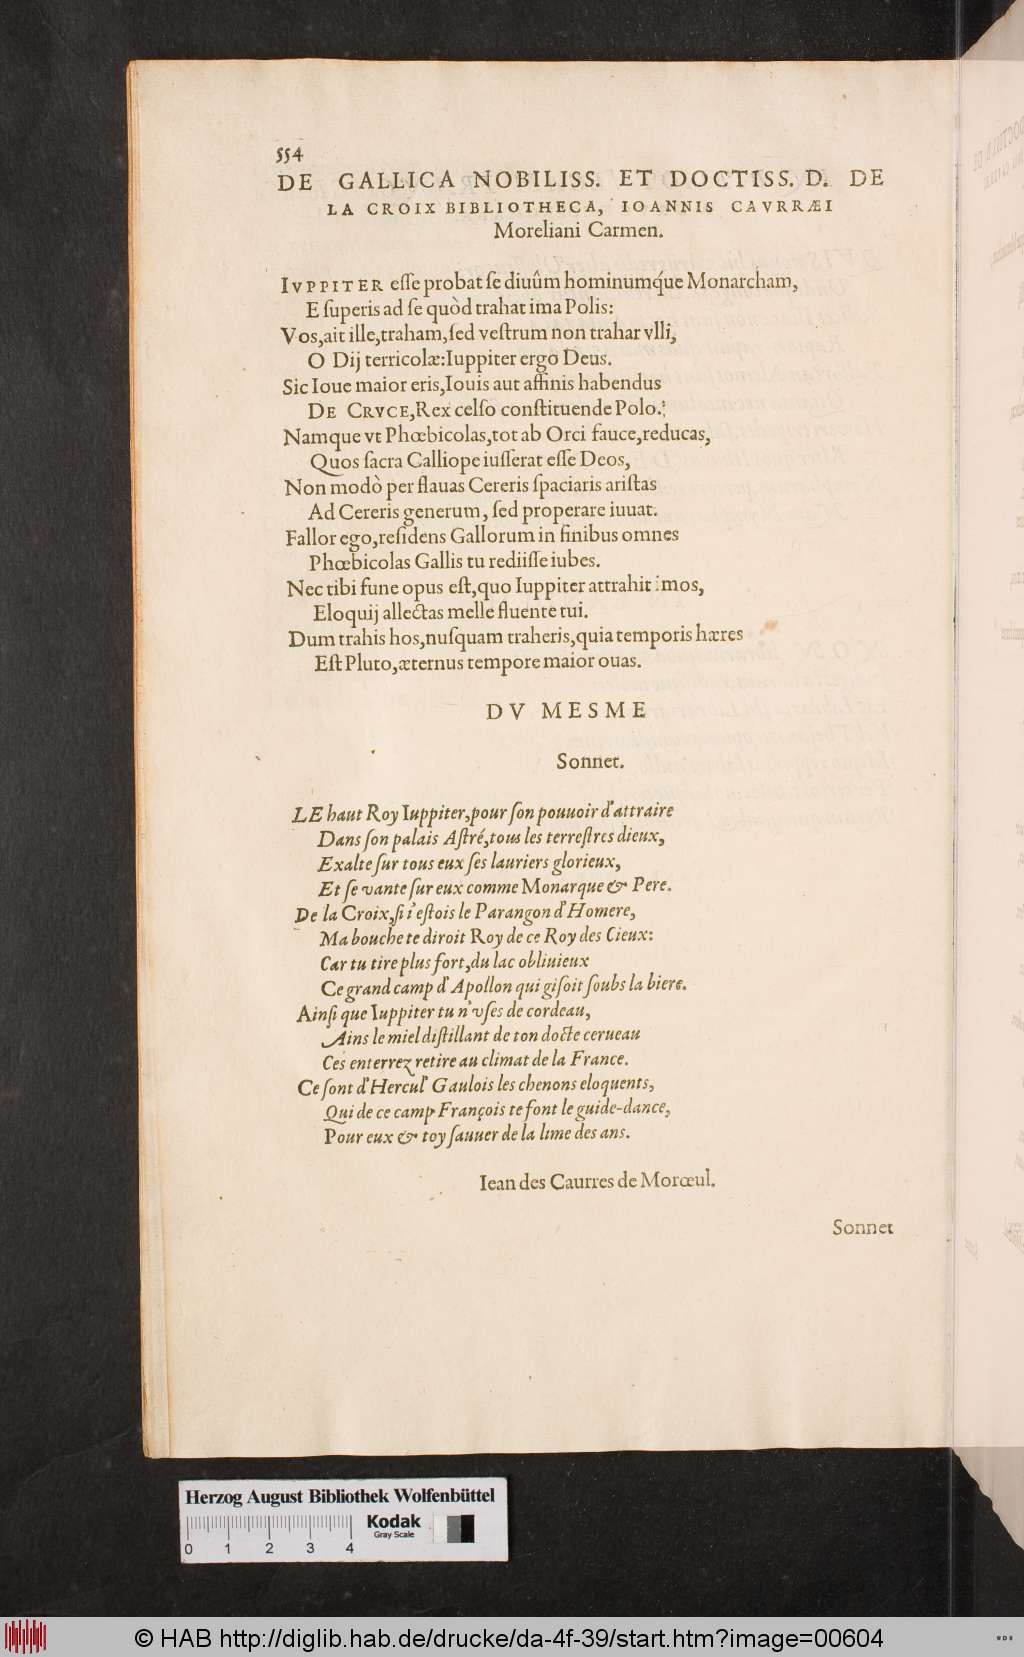 554
DE GALLICA NOBILISS. ET DOCTISS. D. DE
LA CROIX BIBLIOTHECA, IOANNIS CAVRRÆI
Moreliani Carmen.
IVPPITER eſſe probat ſe diuûm hominumq́ue Monarcham,
E ſuperis ad ſe quòd trahat ima Polis:
Vos, ait ille, traham, ſed veſtrum non trahar vlli,
O Dij terricolæ: Iuppiter ergo Deus.
Sic Ioue maior eris, Iouis aut affinis habendus
DE CRVCE, Rex celſo conſtituende Polo.
Namque vt Phœbicolas, tot ab Orci fauce, reducas,
Quos ſacra Calliope iuſſerat eſſe Deos,
Non modò per flauas Cereris ſpaciaris ariſtas
Ad Cereris generum, ſed properare iuuat.
Fallor ego, reſidens Gallorum in finibus omnes
Phœbicolas Gallis tu rediiſſe iubes.
Nec tibi fune opus eſt, quo Iuppiter attrahit imos,
Eloquij allectas melle fluente tui.
Dum trahis hos, nuſquam traheris, quia temporis hæres
Eſt Pluto, æternus tempore maior ouas.
DV MESME
Sonnet.
LE haut Roy Iuppiter, pour ſon pouuoir d'attraire
Dans ſon palais Aſtré, tous les terreſtres dieux,
Exalte ſur tous eux ſes lauriers glorieux,
Et ſe vante ſur eux comme Monarque & Pere.
De la Croix, ſi i'eſtois le Parangon d'Homere,
Ma bouche te diroit Roy de ce Roy des Cieux:
Car tu tire plus fort, du lac obliuieux
Ce grand camp d'Apollon qui giſoit ſoubs la biere.
Ainſi que Iuppiter tu n'vſes de cordeau,
Ains le miel diſtillant de ton docte cerueau
Ces enterrez retire au climat de la France.
Ce ſont d'Hercul' Gaulois les chenons eloquents,
Qui de ce camp François te font le guide-dance,
Pour eux & toy ſauuer de la lime des ans.
Iean des Caurres de Morœul.
Sonnet
Herzog August Bibliothek Wolfenbüttel
Kodak
Gray Scale
0 1 2 3 4
© HAB http://diglib.hab.de/drucke/da-4f-39/start.htm?image=00604